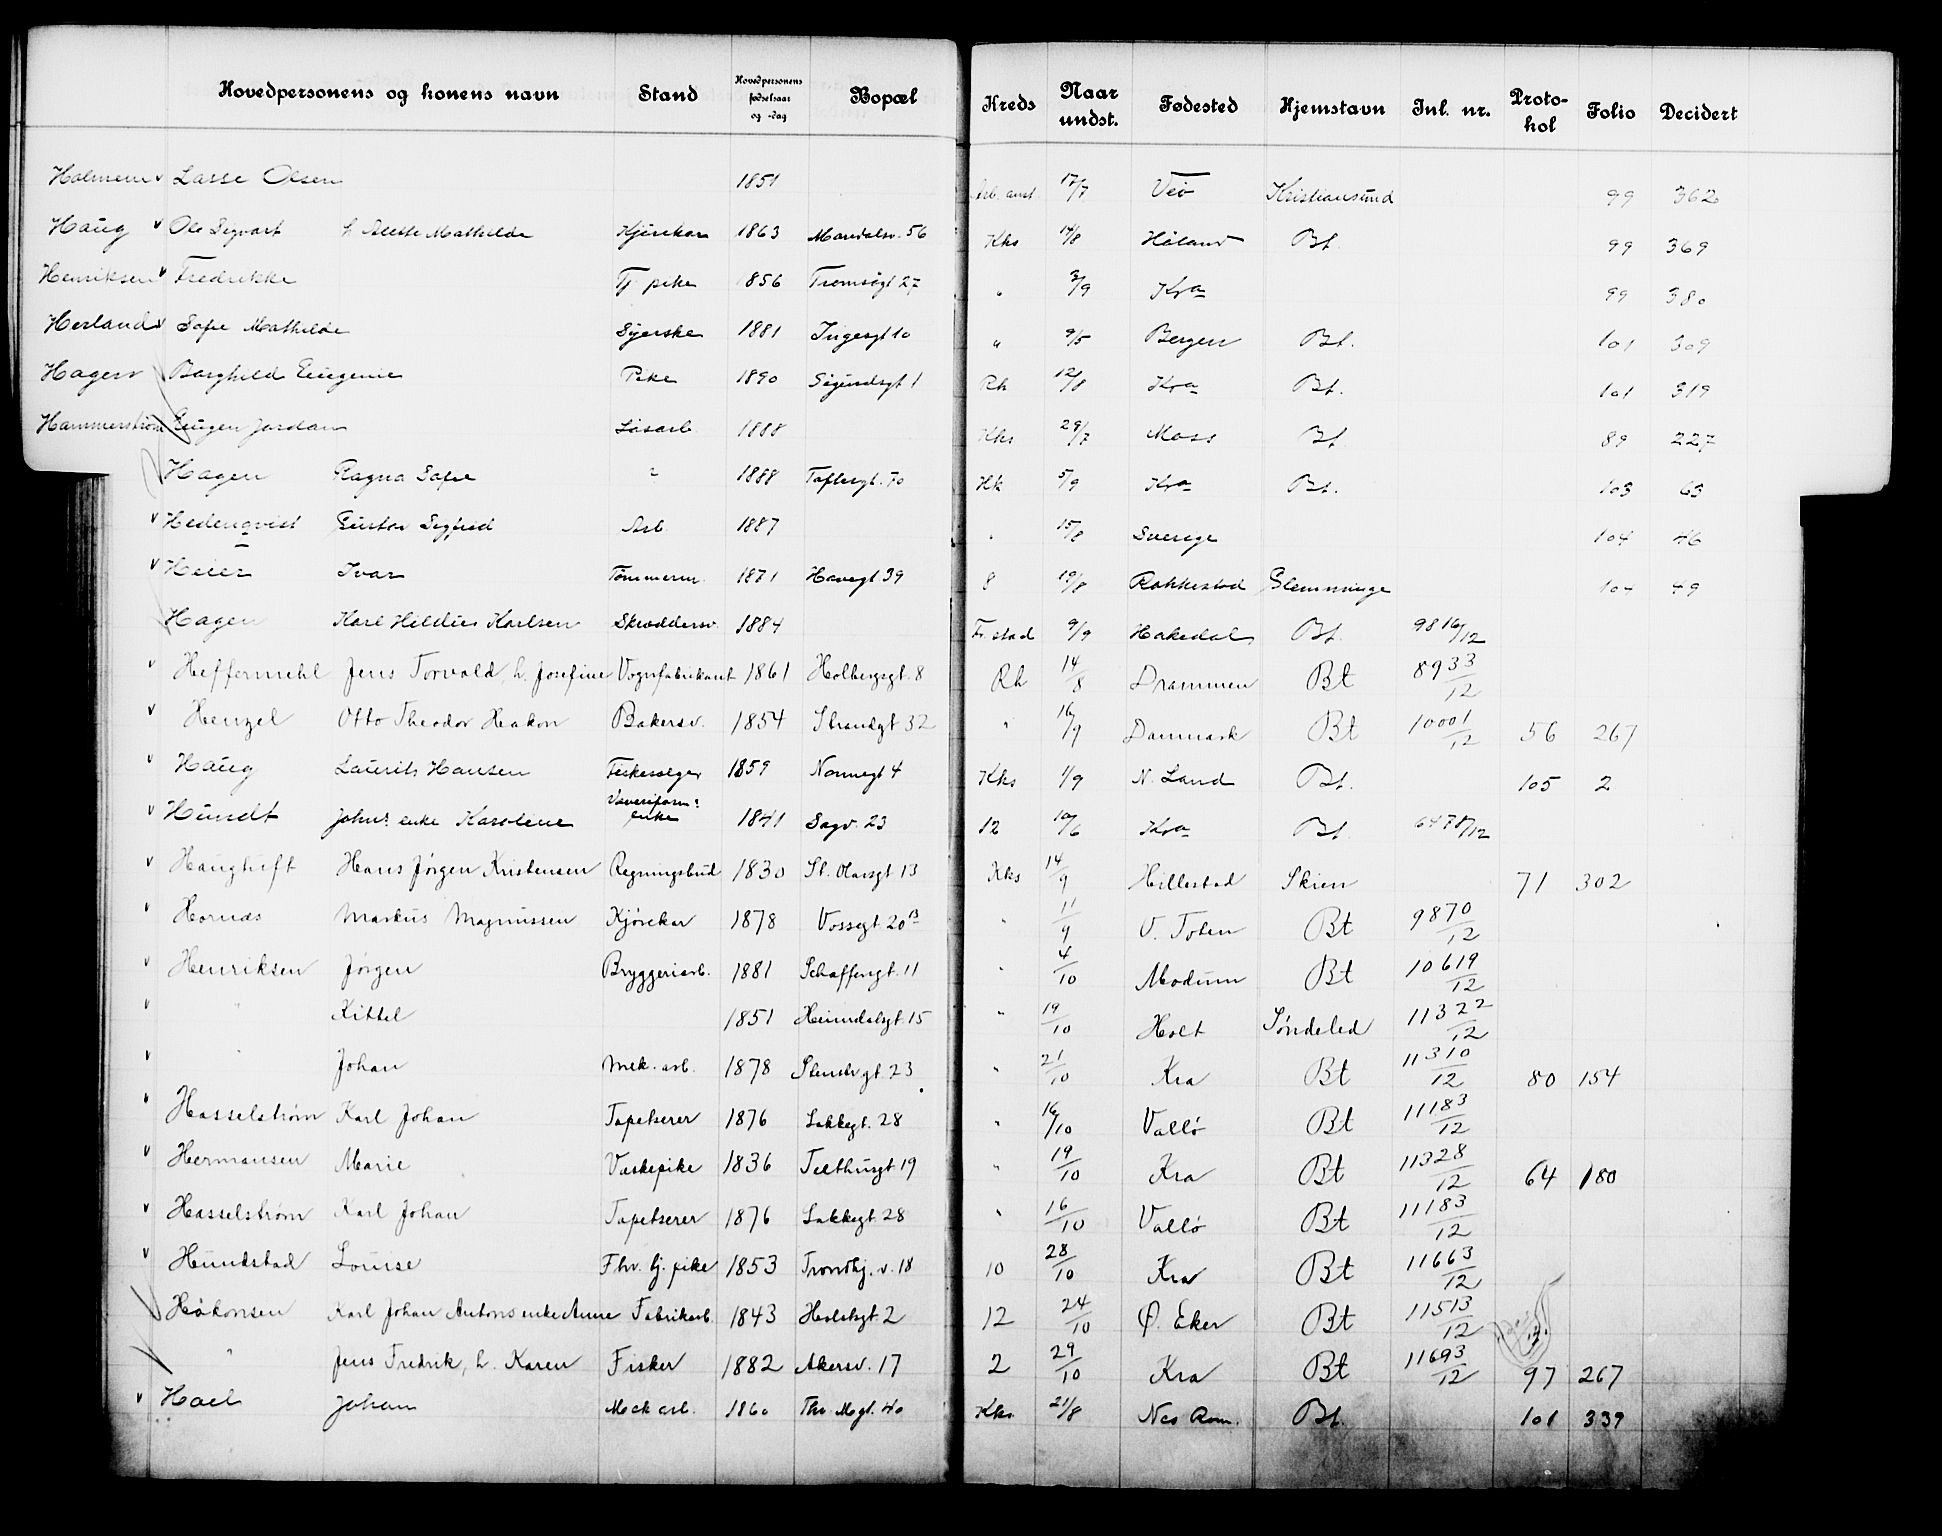 Hovedpersonens og konens navn | Stand | Hovedpersonens fødselsaar og -dag | Bopæl | Kreds | Naar undst. | Fødested | Hjemstavn | Inl. nr. | Proto-kol | Folio | Decidert
Holmen v Lasse Olsen 1851 Arb. anst 17/7 Veö Kristiansund 99 362
Haug v Ole Sigvart h. Alette Mathilde Kjørekar 1863 Maridalsv. 56 Kks 14/8 Høland Bt. 99 369
Henriksen v Fredrikke Tj pike 1856 Tromsøgt 27 " 3/9 Kra 99 380
Herland v Sofie Mathilde Syerske 1881 Ingesgt 10 " 9/5 Bergen Bt. 101 309
Hagen Borghild Eugenie Pike 1890 Sigurdsgt 1 Rh 12/8 Kra Bt. 101 319
Hammerstrøm Eugen Jordan Løsarb. 1888 Kks 29/7 Moss Bt. 89 227
Hagen Ragna Sofie " 1888 Toftesgt. 70 Hk 5/9 Kra Bt. 103 63
v Hedenqvist Gustav Sigfred Arb. 1887 " 15/8 Sverige 104 46
v Heier Ivar Tømmerm. 1871 Havegt 39 8 19/8 Rakkestad Glemminge 104 49
Hagen Karl Hildius Karlsen Skreddersv. 1884 Fr.stad 9/9 Hakedal Bt. 9816/12
v Heffermehl Jens Torvald, h. Josefine Vognfabrikant 1861 Holbergsgt. 8 Rh 14/8 Drammen Bt 8933/12
v Henzel Otto Theodor Hakon Bakersv. 1854 Strandgt 32 " 16/9 Danmark Bt 10001/12 56 267
v Haug Laurits Hansen Fiskesælger 1859 Nonnegt 4 Kks 1/9 N. Land Bt. 105 2
v Hundt Johs. enke Karoline enke 1841 Sagv. 23 12 10/6 Kra Bt. 6478/12
v Haugtuft Hans Jørgen Kristensen Regningsbud 1830 St. Olavsgt 13 Kks 14/9 Hillestad Skien 71 302
v Hornäs Markus Magnussen Kjørekar 1878 Vossegt 20 B " 11/9 V. Toten Bt 9870/12
v Henriksen Jørgen Bryggeriarb. 1881 Schaffersgt. 11 " 4/10 Modum Bt 10619/12
v " Kittel 1851 Heimdalsgt. 15 " 19/10 Holt Søndeled 11322/12
v " Johan Mek. arb. 1878 Stensbrgt. 23 " 21/10 Kra Bt 11310/12 80 154
v Hasselstrøm Karl Johan Tapetserer 1876 Lakkegt. 28 " 16/10 Vallö Bt 11183/12
v Hermansen Marie Vaskepike 1836 Telthusgt 19 " 19/10 Kra Bt 11328/12 64 180
v Hasselstrøm Karl Johan Tapetserer 1876 Lakkegt 28 " 16/10 Vallö Bt 11183/12
v Hundstad Louise Fhv. tj. pike 1853 Trondhj. v. 18 10 28/10 Kra Bt 11663/12
Håkonsen Karl Johan Antons enke Anne Fabrikarb. 1843 Hedebgt 2 12 24/10 Ø. Eker Bt 11513/12
" Jens Fredrik, h. Karen Fisker 1882 Akersv. 17 2 29/10 Kra Bt 11693/12 97 267
v Hoel Johan Mek arb. 1860 Thv. Mgt. 40 Kks 21/8 Nes Rom. Bt. 101 339